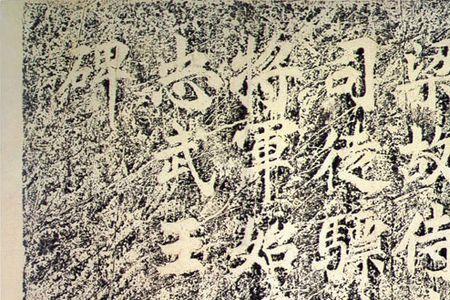 梁故侍
司徒驃
將軍始
忠武王
碑